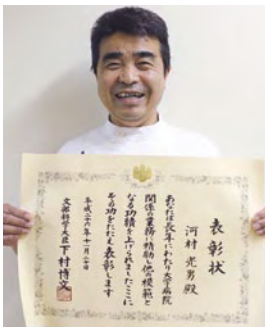 表彰状
河村光男殿
あなたは長年にわたり大学病院
関係の業務に精励し他の模範と
なる功績を上げられましたここに
その功をたたえ表彰します
平成二十六年十一月二十日
文部科学大臣下村博文